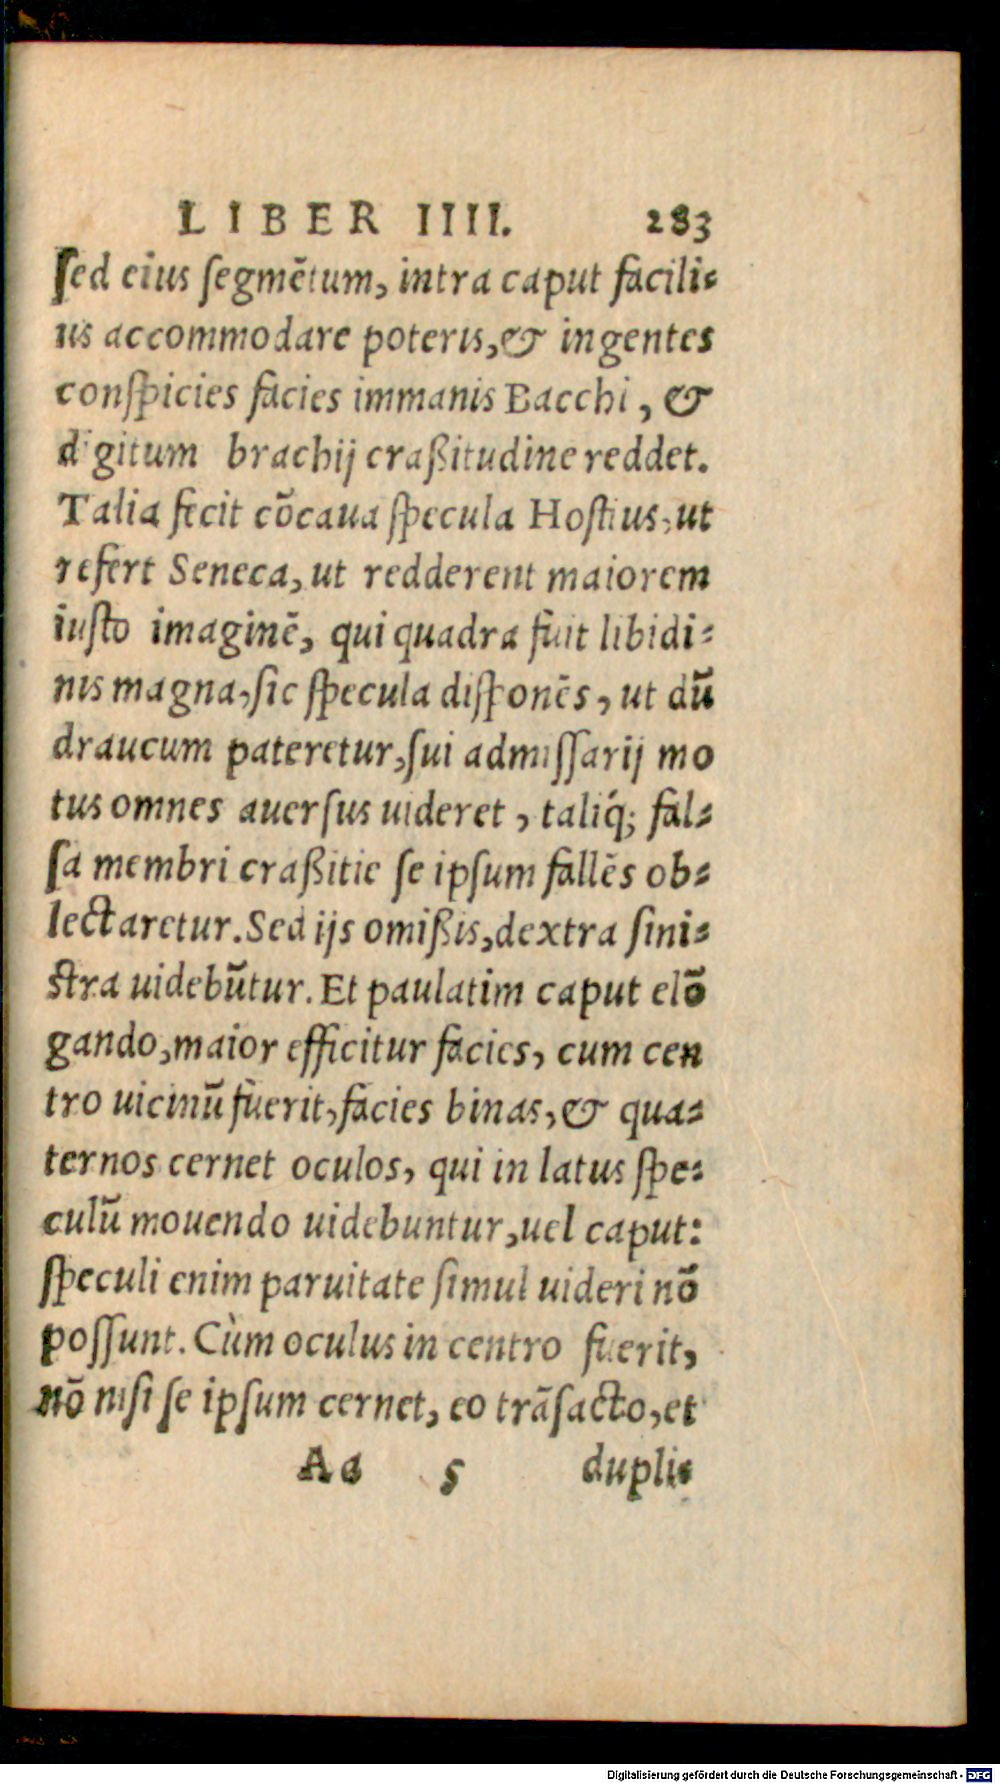 LIBER IIII. 283
ſed eius ſegmẽtum, intra caput facili⸗
us accommodare poteris, & ingentes
conſpicies facies immanis Bacchi, &
digitum brachij craßitudine reddet.
Talia fecit cõcaua ſpecula Hoſtius, ut
refert Seneca, ut redderent maiorem
iuſto imaginẽ, qui quadra fuit libidi⸗
nis magna, ſic ſpecula diſponẽs, ut dũ
draucum pateretur, ſui admiſſarij mo
tus omnes auerſus uideret, taliq́; fal⸗
ſa membri craßitie ſe ipſum fallẽs ob⸗
lectaretur. Sed ijs omißis, dextra ſini⸗
ſtra uidebũtur. Et paulatim caput elõ
gando, maior efficitur facies, cum cen
tro uicinũ fuerit, facies binas, & qua⸗
ternos cernet oculos, qui in latus ſpe⸗
culũ mouendo uidebuntur, uel caput:
ſpeculi enim paruitate ſimul uideri nõ
poſſunt. Cùm oculus in centro fuerit,
nõ niſi ſe ipſum cernet, eo trãſacto, et
Aa 5 dupli⸗
Digitalisierung gefördert durch die Deutsche Forschungsgemeinschaft - DFG